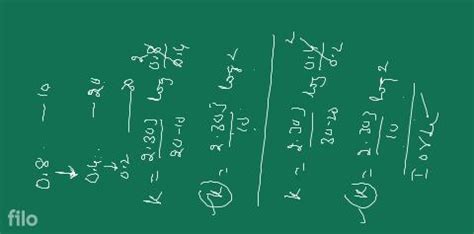 0.8 — 10
0.4 — 20
0.2 — 30
K = 2.303 / 20-10 log 0.8 / 0.4
K = 2.303 / 10 log 2
K = 2.303 / 30-20 log 0.4 / 0.2
K = 2.303 / 10 log 2
I order
filo